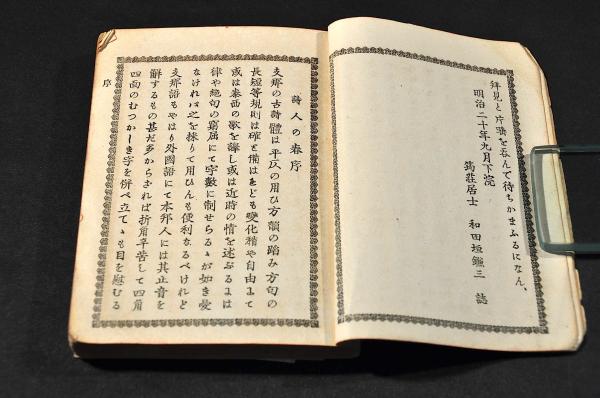 拜見と片唾を呑んで待ちかまふるになん、
明治二十年九月下浣
居士 和田垣謙三 誌
詩人の春序
支那の古詩體は平仄の用ひ方韻の踏み方句の
長短等規則は確と備はれども變化稍や自由にて
或は泰西の歌を譯し或は近時の情を述ぶるには
律や絶句の窮屈にて字數に制せらるゝが如き憂
なければ之を採りて用ひんも便利なるべけれど
支那語もやはり外國語にて本邦人には其正音を
解するもの甚だ多からざれば折角辛苦して四角
四面のむつかしき字を併べ立てゝも目を慰むる
序